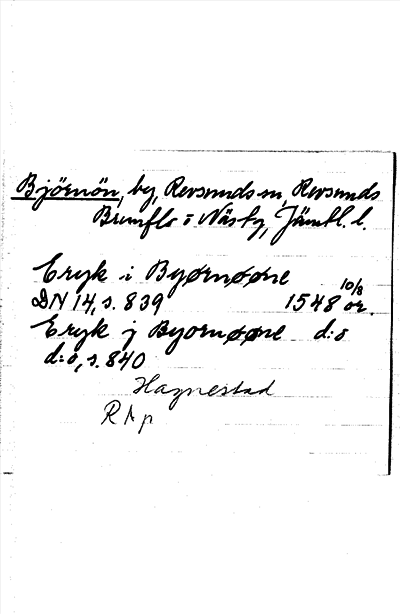 Björnön, by, Revsunds sn, Revsunds
Brunflo o Näsby, Jämtl. l.
Eryk i Byørnøøne
10/8
DN 14, s. 839 1548 or.
Eryk j Byornøøne d:o
d:o, s. 840
Hagnestad